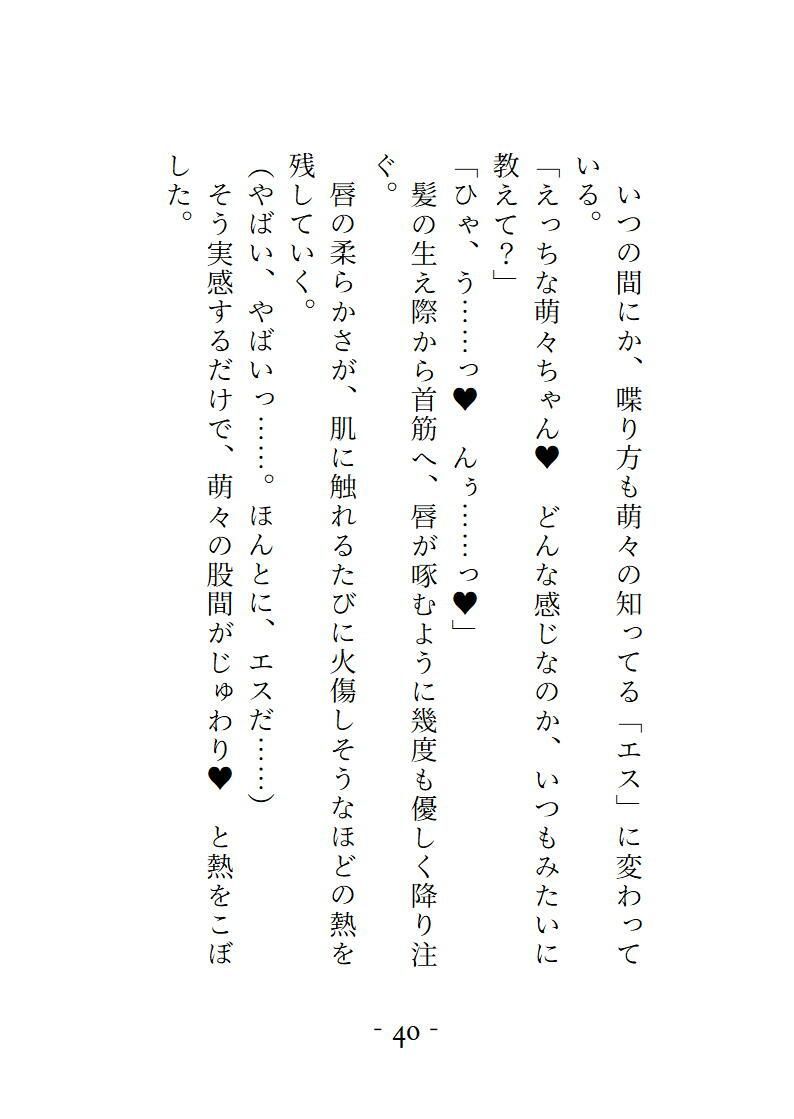 いつの間にか、喋り方も萌々の知ってる「エス」に変わって
いる。
「えっちな萌々ちゃん♥　どんな感じなのか、いつもみたいに
教えて？」
「ひゃ、う……っ♥　んぅ……っ♥」
　髪の生え際から首筋へ、唇が啄むように幾度も優しく降り注
ぐ。
　唇の柔らかさが、肌に触れるたびに火傷しそうなほどの熱を
残していく。
（やばい、やばいっ……。ほんとに、エスだ……）
　そう実感するだけで、萌々の股間がじゅわり♥　と熱をこぼ
した。
- 40 -